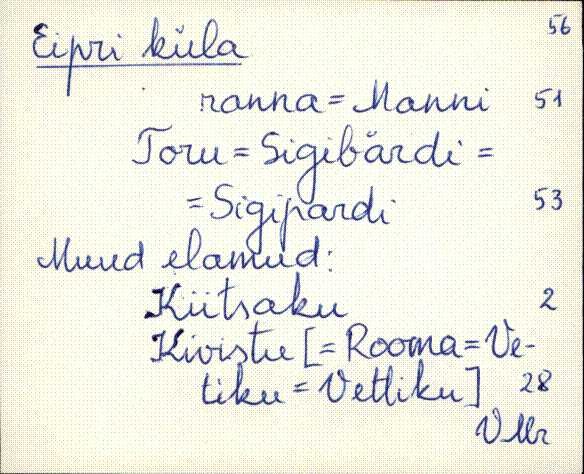 56
Eipri küla
ranna = Manni 51
Toru = Sigibärdi =
= Sigipardi 53
Muud elamud:
Kiitsaku 2
Kivistu [= Rooma = Ve-
tiku = Vetliku] 28
VMr